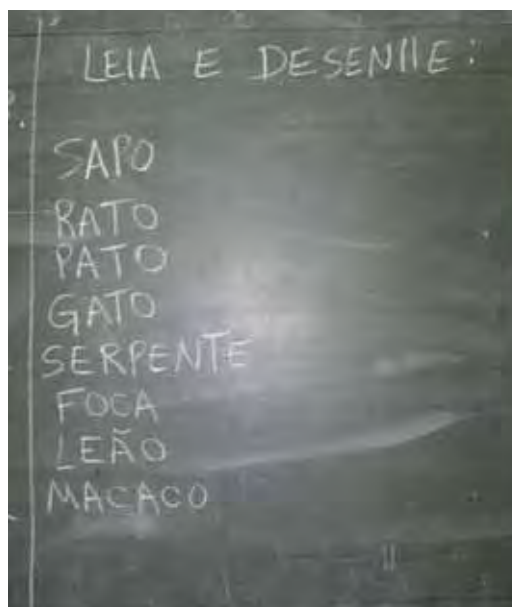 LEIA E DESENHE:
SAPO
RATO
PATO
GATO
SERPENTE
FOCA
LEÃO
MACACO